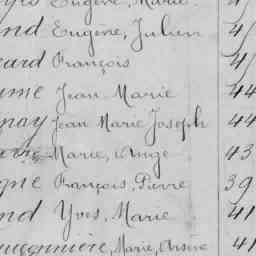 Eugène, Marie 45
nd Eugène, Julien 45
ard François 45
ume Jean Marie 44
nay Jean Marie Joseph 44
Marie, Ange 43
gne François, Pierre 39
nd Yves, Marie 41
uconnière, Marie, Arsène 41